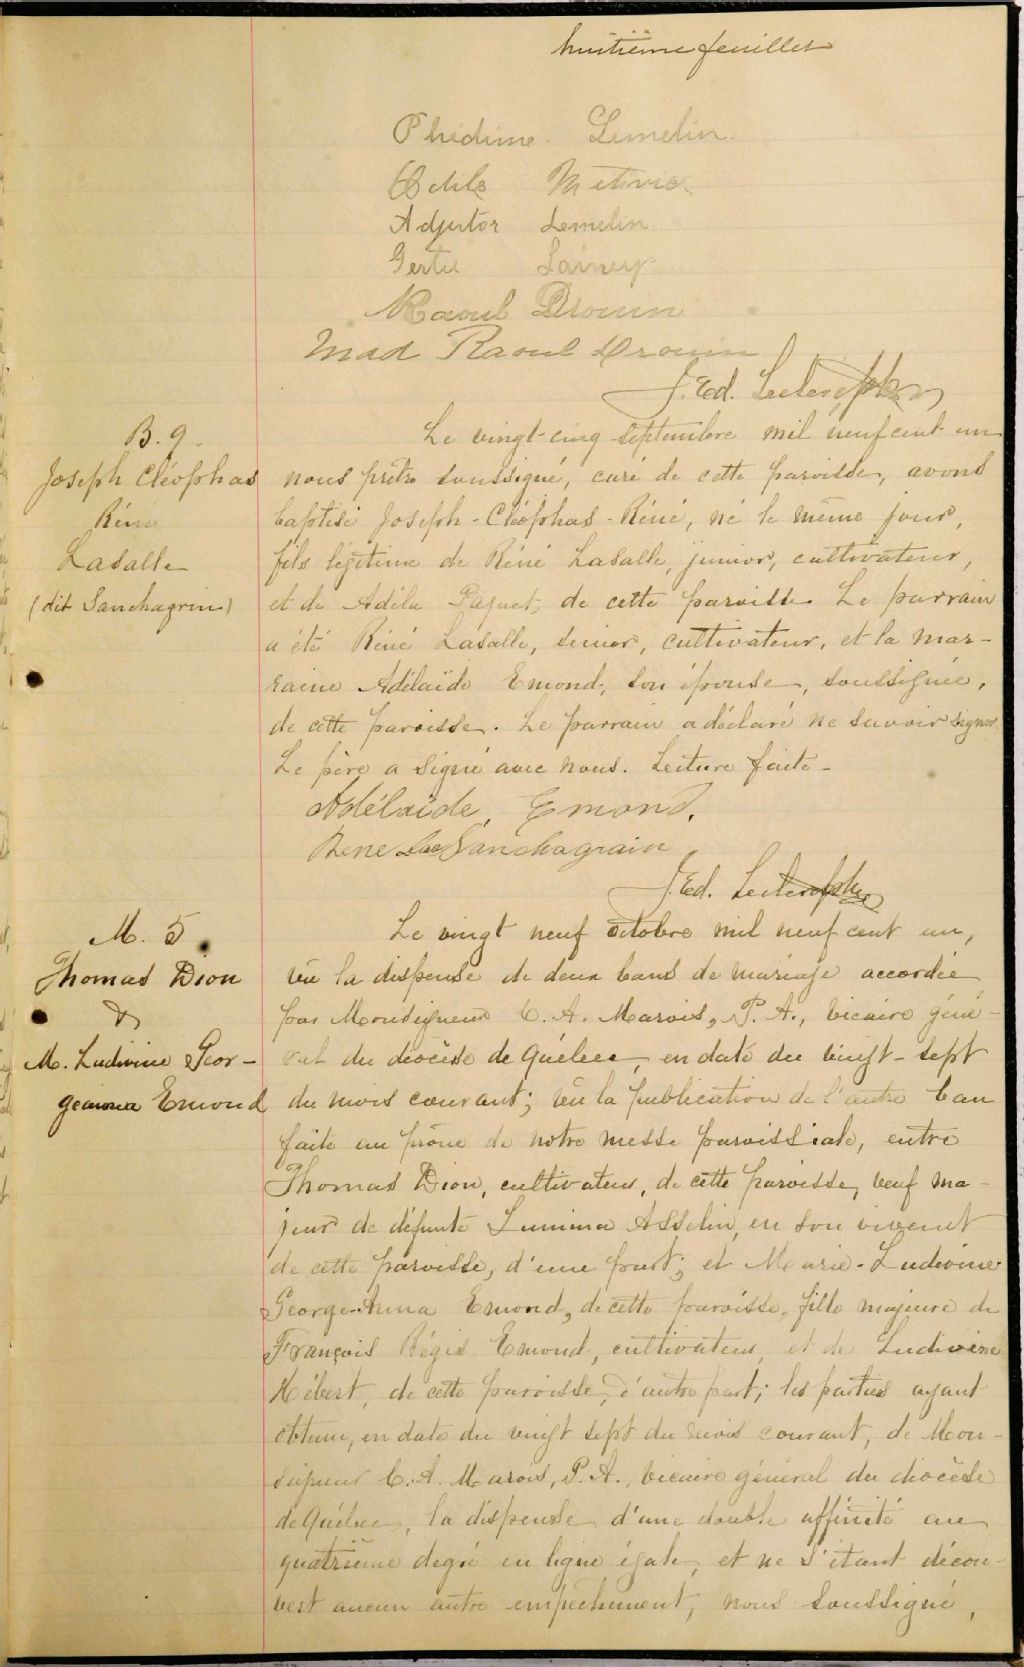 huitième feuillet
Phédime Lemelin
Odile Métivier
Adjutor Lemelin
Gertie Lainey
Raoul Drouin
Mad Raoul Drouin
J. Ed. Leclerc ptre
B. 9.
Joseph Cléophas
Réné
Lasalle
(dit Sanchagrin)
Le vingt-cinq septembre mil neuf cent un
nous prêtre soussigné, curé de cette paroisse, avons
baptisé Joseph-Cléophas-Réné, né le même jour,
fils légitime de Réné Lasalle, junior, cultivateur,
et de Adéla Paquet, de cette paroisse. Le parrain
a été Réné Lasalle, senior, cultivateur, et la mar-
raine Adélaïde Emond, son épouse, soussignée,
de cette paroisse. Le parrain a déclaré ne savoir signer.
Le père a signé avec nous. Lecture faite.
Adélaïde Emond.
Rene Sanchagrain
J. Ed. Leclerc ptre
M. 5
Thomas Dion
&
M. Ludivine Geor-
geanna Emond
Le vingt neuf octobre mil neuf cent un,
vû la dispense de deux bans de mariage accordée
par Monseigneur C. A. Marois, P. A., vicaire géné-
ral du diocèse de Québec, en date du vingt-sept
du mois courant; vû la publication de l'autre ban
faite au prône de notre messe paroissiale, entre
Thomas Dion, cultivateur, de cette paroisse, veuf ma-
jeur de défunte Lumina Asselin, en son vivant
de cette paroisse, d'une part; et Marie-Ludivine
George-Anna Emond, de cette paroisse, fille majeure de
François Régis Emond, cultivateur, et de Ludivine
Hébert, de cette paroisse, d'autre part; les parties ayant
obtenu, en date du vingt sept du mois courant, de Mon-
seigneur C. A. Marois, P. A., vicaire général du diocèse
de Québec, la dispense d'une double affinité au
quatrième degré en ligne égale, et ne s'étant décou-
vert aucun autre empêchement, nous soussigné,